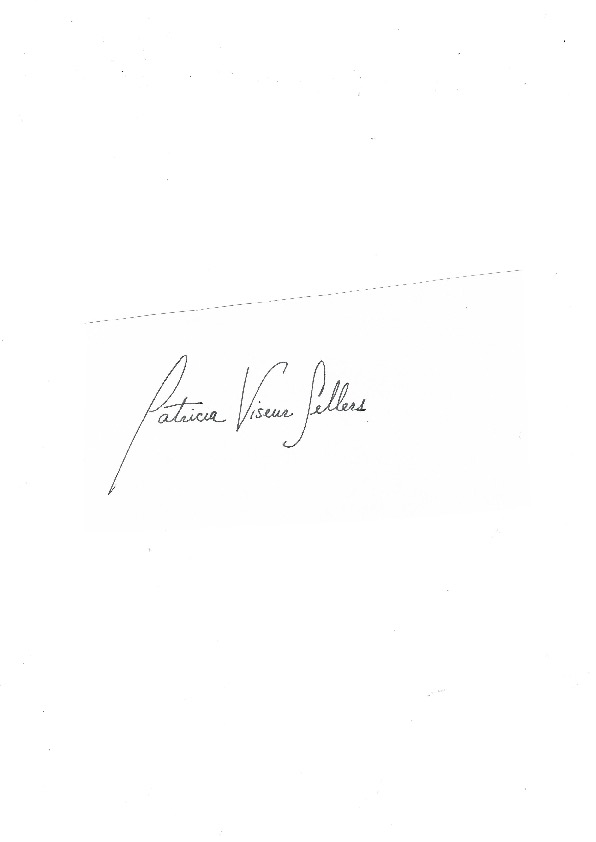 Patricia Viseur Sellers